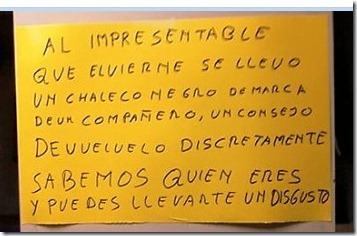 AL IMPRESENTABLE
QUE ELVIERNE SE LLEVO
UN CHALECO NEGRO DE MARCA
DEUN COMPAÑERO, UN CONSEJO
DEVUELUELO DISCRETAMENTE
SABEMOS QUIEN ERES
Y PUEDES LLEVARTE UN DISGUSTO